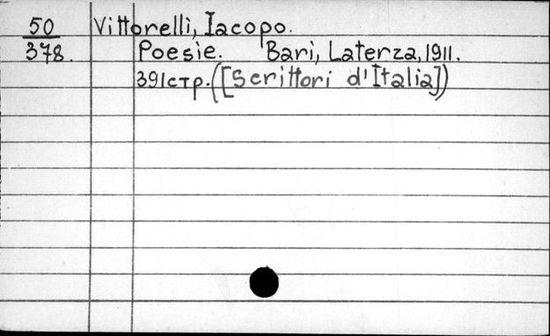 50 Vittorelli, Iacopo.
378. Poesie. Bari, Laterza, 1911.
391стр. ([Scrittori d'Italia])